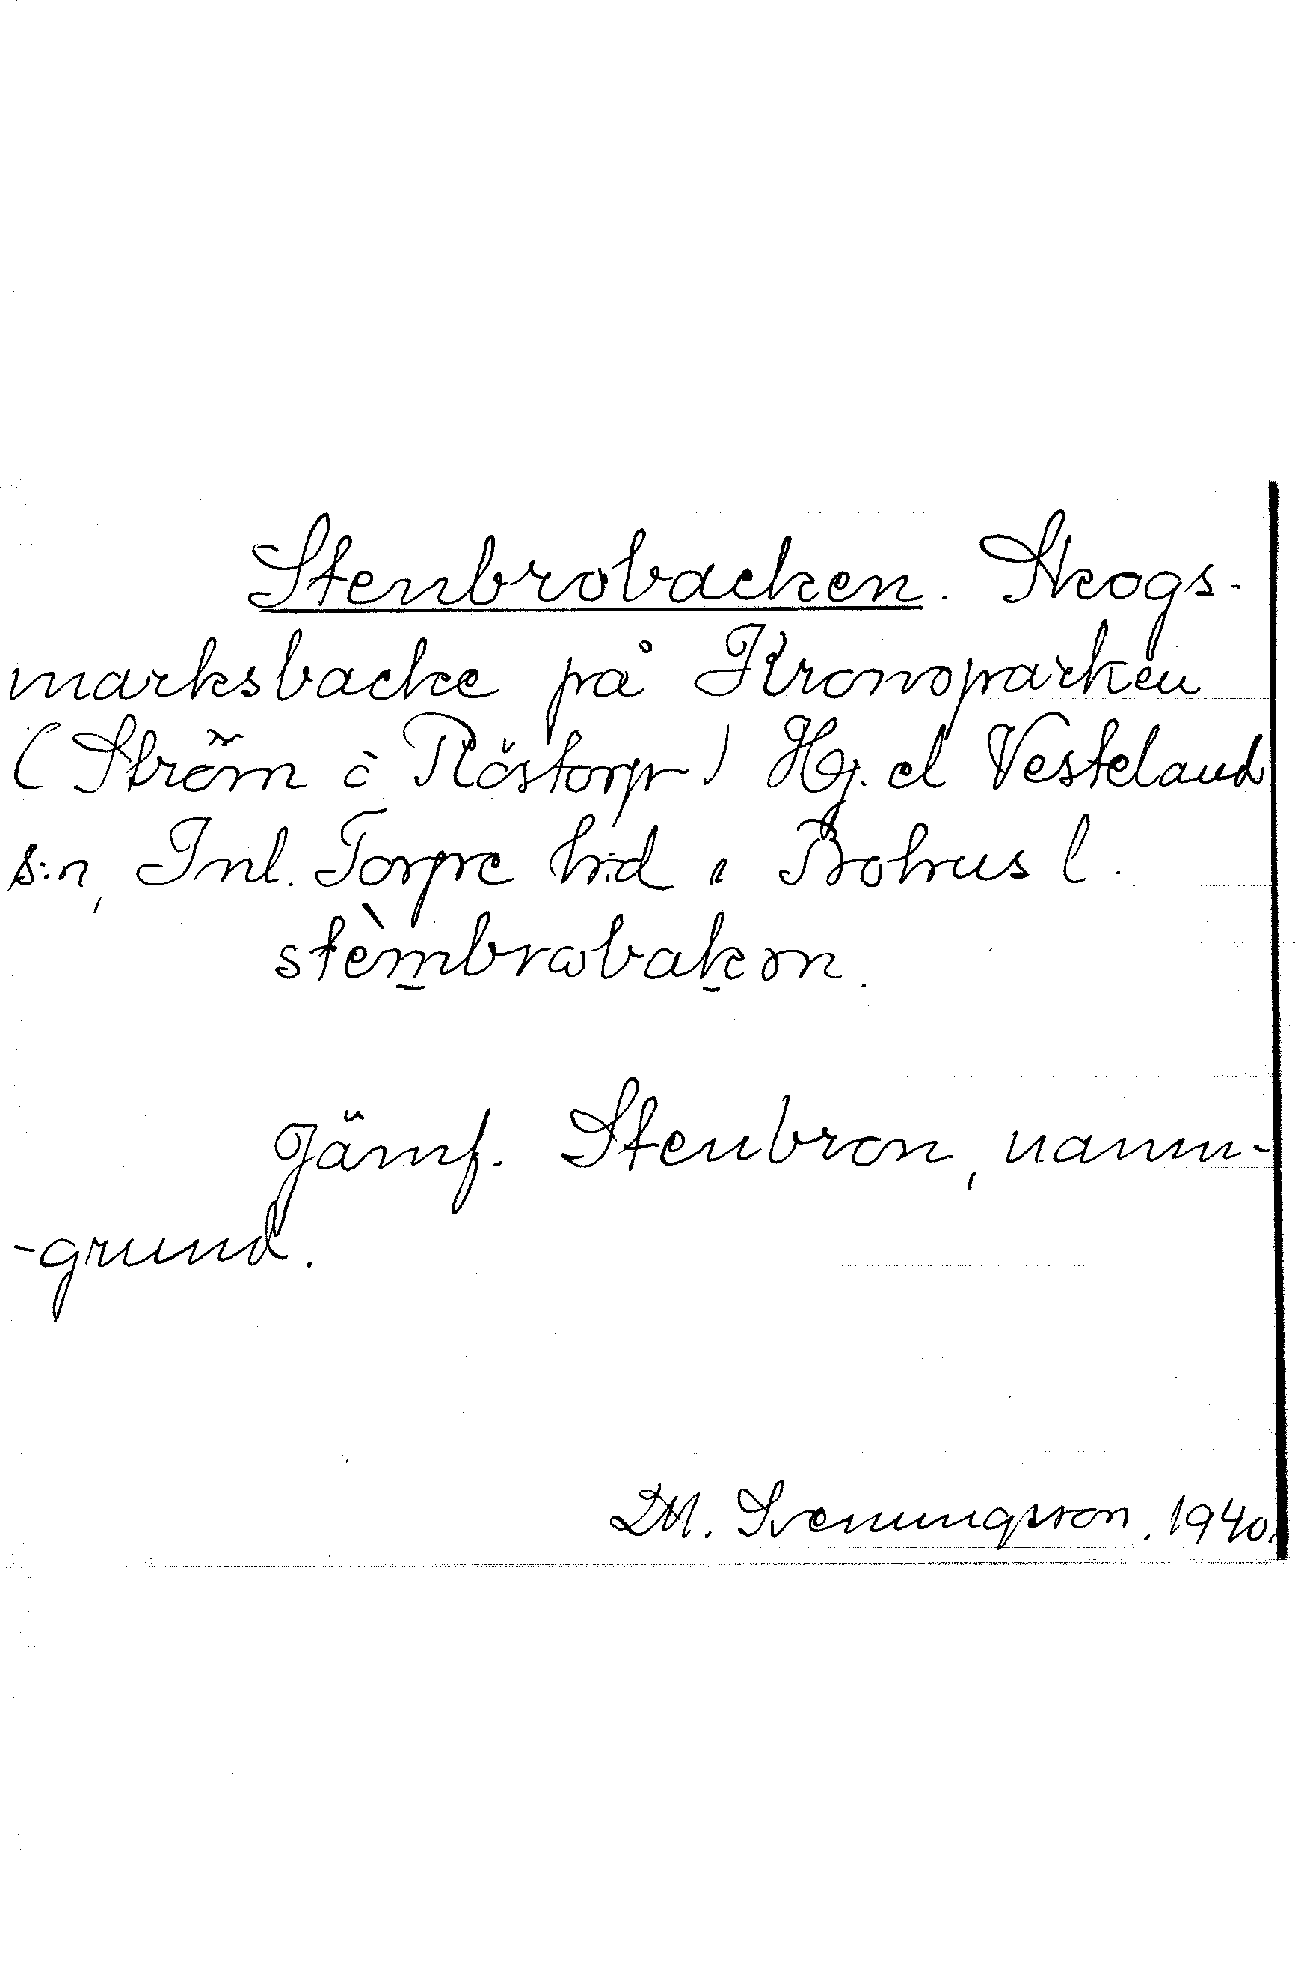 Stenbrobacken. Skogs-
marksbacke på Kronoparken
(Ström o Röstorp) Hj. el Vesteland
s:n, Inl. Torpe h:d i Bohus l.
stèm̲brωbak̲ən.
Jämf. Stenbron, namn-
-grund.
D.H. Svenungsson. 1940.